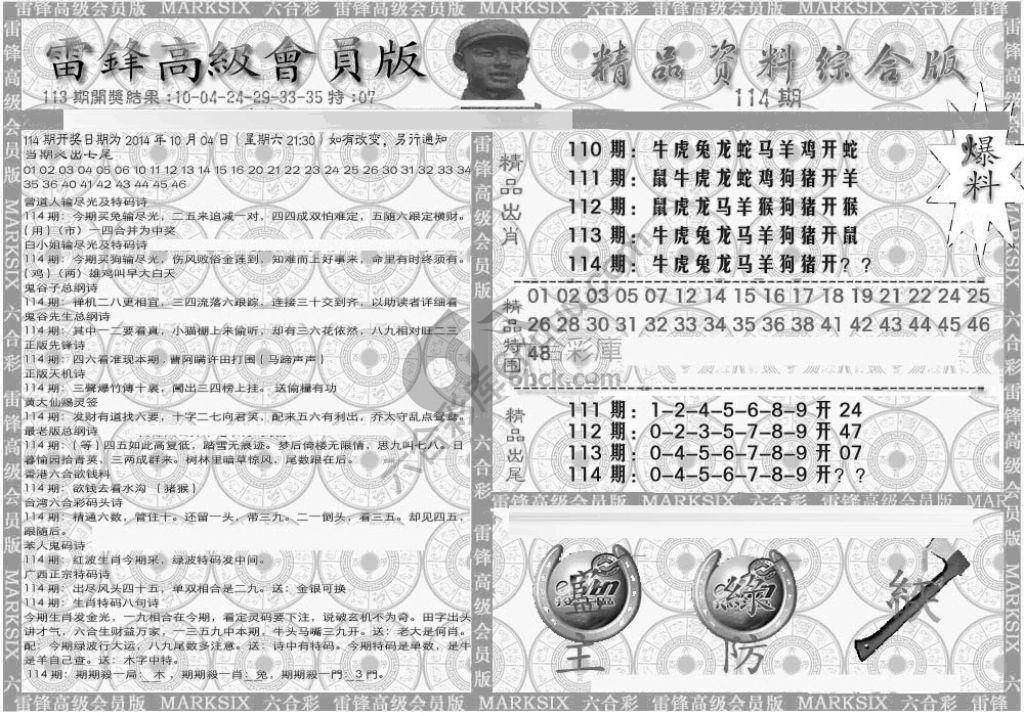 雷锋高级会员版 MARKSIX 六合彩 雷锋高级会员版 MARKSIX 六合彩 雷锋高级会员版 MARKSIX 六合彩 雷锋高级会员版
雷鋒高級會員版
精品資料綜合版
113期開獎結果:10-04-24-29-33-35特:07
114期
爆料
114期开奖日期为2014年10月04日(星期六21:30)如有改变,另行通知
当期入出七尾
01 02 03 04 05 06 10 11 12 13 14 15 16 20 21 22 23 24 25 26 30 31 32 33 34
35 36 40 41 42 43 44 45 46
曾道人输尽光及特码诗
114期:今期买兔输尽光,二五来追减一对,四四成双怕难定,五随六跟定横财。
{用}(市)一四合并为中奖
白小姐输尽光及特码诗
114期:今期买狗输尽光,伤风败俗金莲到,知难而上好事来,命里有时终须有。
{鸡}(两)雄鸡叫早大白天
鬼谷子总纲诗
114期:禅机二八更相宜,三四流落六跟踪,连接三十交到齐,以助读者详细看
鬼谷先生总纲诗
114期:其中一二要看真,小猫棚上来偷听,却有三六花依然,八九相对旺二三
正版先锋诗
114期:四六看准现本期,曹阿瞒许田打围{马蹄声声}
正版天机诗
114期:三聲爆竹傳十裏,闖出三四榜上挂。送偷樯有功
黄大仙赐灵签
114期:发财有道找六要,十字二七向君笑,配来五六有利出,乔太守乱点鸳鸯。
最老版总纲诗
114期:(等)四五如此高复低,踏雪无痕迹。梦后倚楼无限情,思九叫七八。日
暮愉园拾青荚,三两成群来。树林里暗草惊风,尾数跟在后。
香港六合欲钱料
114期:欲钱去看水沟 {猪猴}
台湾六合彩码头诗
114期:精通六数,管住十。还留一头,带三九。二一倒头,看三五。却见四五,
跟随后。
苯人鬼码诗
114期:红波生肖今期来,绿波特码发中间。
广西正宗特码诗
114期:出尽风头四十五,单双相合是二九。送:金银可换
114期:生肖特码八句诗
今期生肖发金光,一九相合在今期,看定灵码要下注,说破玄机不为奇。田字出头
讲才气,六合生财益万家,一三五九中本期,牛头马嘴三九开。送:老大是何肖。
配:今期绿波行大运,八九尾数多注意。送:诗中有特码。今期特码是单数,是牛
是羊自己查。送:木字中特。
114期:期期殺一局:木,期期殺一肖:兔,期期殺一門:3門。
精品出肖
110期:牛虎兔龙蛇马羊鸡开蛇
111期:鼠牛虎龙蛇鸡狗猪开羊
112期:鼠虎龙马羊猴狗猪开猴
113期:牛虎兔龙马羊狗猪开鼠
114期:牛虎兔龙马羊狗猪开??
精品特围
01 02 03 05 07 12 14 15 16 17 18 19 21 22 24 25
26 28 30 31 32 33 34 35 36 38 41 42 43 44 45 46
48
精品出尾
111期:1-2-4-5-6-8-9开24
112期:0-2-3-5-7-8-9开47
113期:0-4-5-6-7-8-9开07
114期:0-4-5-6-7-8-9开??
雷锋高级会员版 MARKSIX 六合彩 雷锋高级会员版 MARKSIX
藍
綠
紅
主
防
雷锋高级会员版 MARKSIX 六合彩 雷锋高级会员版 MARKSIX 六合彩 雷锋高级会员版 MARKSIX 六合彩 雷锋高级会员版